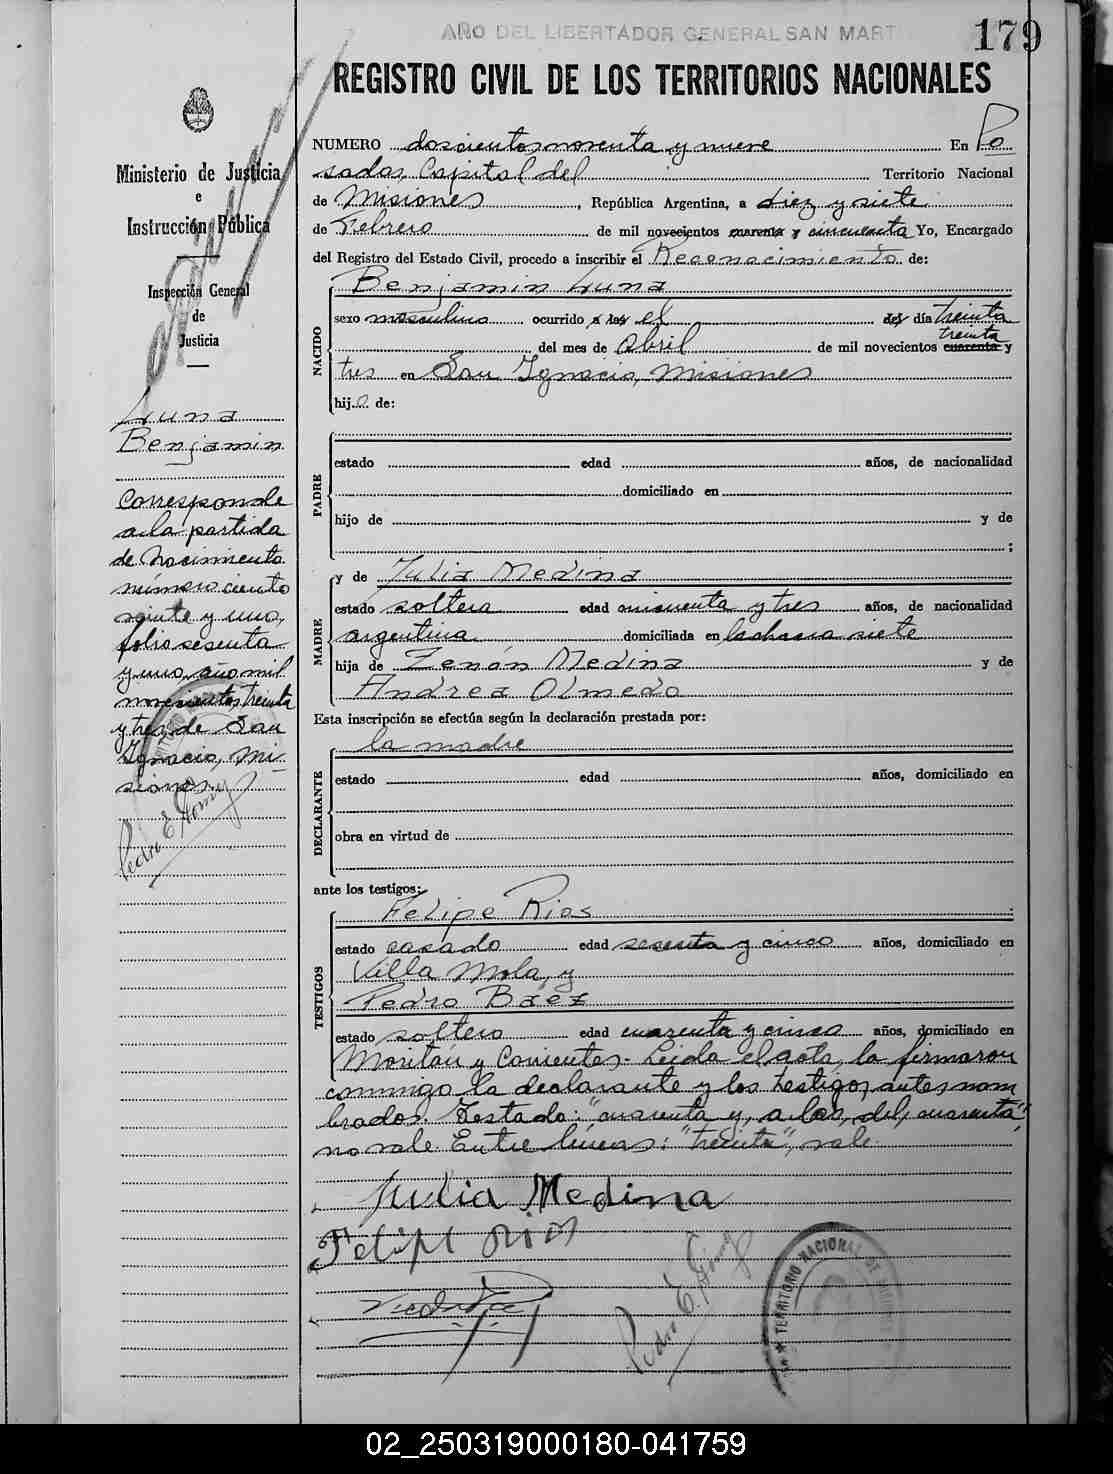 AÑO DEL LIBERTADOR GENERAL SAN MART
179
REGISTRO CIVIL DE LOS TERRITORIOS NACIONALES
Ministerio de Justicia
e
Instrucción Pública
Inspección General
de
Justicia
Luna
Benjamin
Corresponde
a la partida
de Nacimiento
número ciento
veinte y uno,
folio sesenta
y uno, año mil
novecientos treinta
y tres, de San
Ignacio, Mi-
siones.
NUMERO doscientos noventa y nueve En Po
sadas, Capital del Territorio Nacional
de Misiones, República Argentina, a diez y siete
de Febrero de mil novecientos cuarenta y cincuenta Yo, Encargado
del Registro del Estado Civil, procedo a inscribir el Reconocimiento de:
NACIDO
Benjamin Luna
sexo masculino ocurrido a las el del día treinta
treinta
del mes de Abril de mil novecientos cuarenta y
tres en San Ignacio, Misiones
hijo de:
PADRE
estado edad años, de nacionalidad
domiciliado en
hijo de y de
;
MADRE
y de Julia Medina
estado soltera edad cincuenta y tres años, de nacionalidad
argentina domiciliada en la chacra siete
hija de Zenón Medina y de
Andrea Olmedo
Esta inscripción se efectúa según la declaración prestada por:
DECLARANTE
la madre
estado edad años, domiciliado en
obra en virtud de
ante los testigos:
TESTIGOS
Felipe Rios
estado casado edad sesenta y cinco años, domiciliado en
Villa Mola, y
Pedro Báez
estado soltero edad cuarenta y cinco años, domiciliado en
Moritán y Corrientes. Leída el acta, la firmaron
conmigo la declarante y los testigos antes nom
brados. Testado: "cuarenta y, a las, del, cuarenta",
no vale. Entre líneas: "treinta", vale.
Julia Medina
Felipe Rios
TERRITORIO NACIONAL DE
02_250319000180-041759